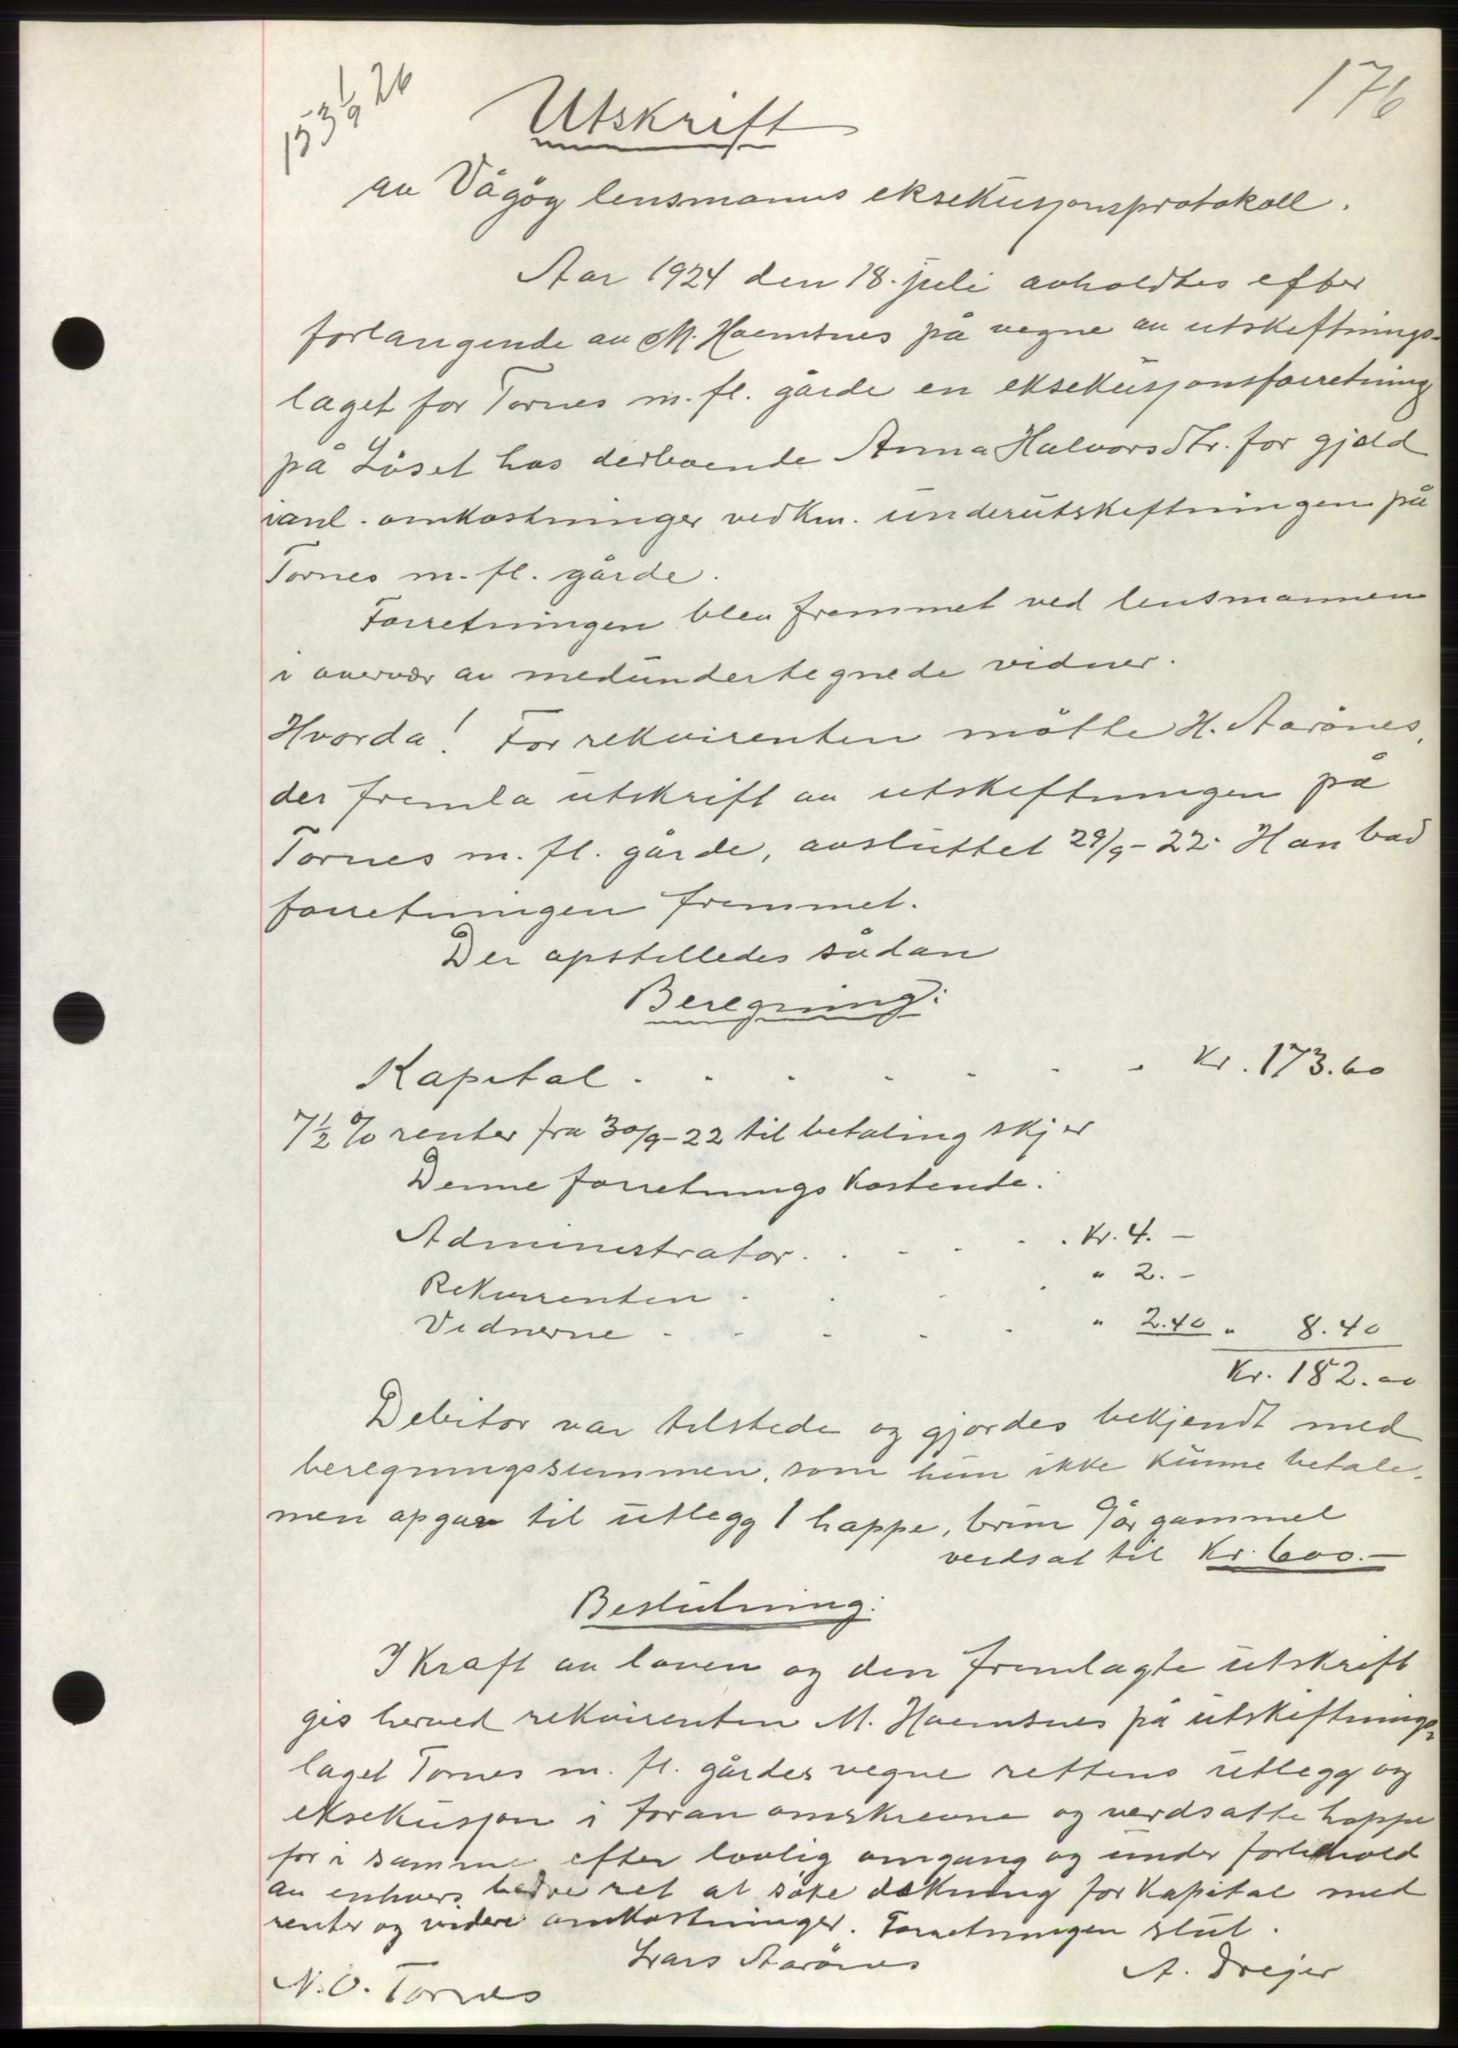 153 1/9 26
176
Utskrift
av Vågöy lensmanns eksekusjonsprotokoll.
Aar 1924 den 18. juli avholdtes efter
forlangende av M. Havmtnes på vegne av utskiftnings-
laget for Tornes m. fl. gårde en eksekusjonsforretning
på Löset hos derboende Anna Halvorsdtr. for gjæld
ianl. omkostninger vedkm. underutskiftningen på
Tornes m. fl. gårde.
Forretningen blev fremmet ved lensmannen
i overvær av medundertegnede vidner.
Hvorda! For rekvirenten mötte H. Aarönes,
der fremla utskrift av utskiftningen på
Tornes m. fl. gårde, avsluttet 29/9-22. Han bad
forretningen fremmet.
Der opstilledes sådan
Beregning:
Kapital . . . . . . . Kr. 173.60
7½ % renter fra 30/9-22 til betaling skjer
Denne forretnings kostende:
Administrator . . . . . . Kr. 4. -
Rekvirenten . . . . " 2. -
Vidnerne . . . . . " 2.40 " 8.40
Kr. 182.00
Debitor var tilstede og gjordes bekjendt med
beregningssummen, som hun ikke kunne betale,
men opgav til utlegg 1 hoppe, brun 9 år gammel
verdsat til Kr. 600.-
Beslutning:
I kraft av loven og den fremlagte utskrift
gis herved rekvirenten M. Havmtnes på utskiftnings-
laget Tornes m. fl. gårdes vegne rettens utlegg og
eksekusjon i foran omskrevne og verdsatte hoppe
for i samme efter lovlig omgang og under forbehold
av enhvers bedre ret at söke dækning for kapital med
renter og videre omkostninger. Forretningen slut.
Lars Aarönes
A. Drejer
N. O. Tornes